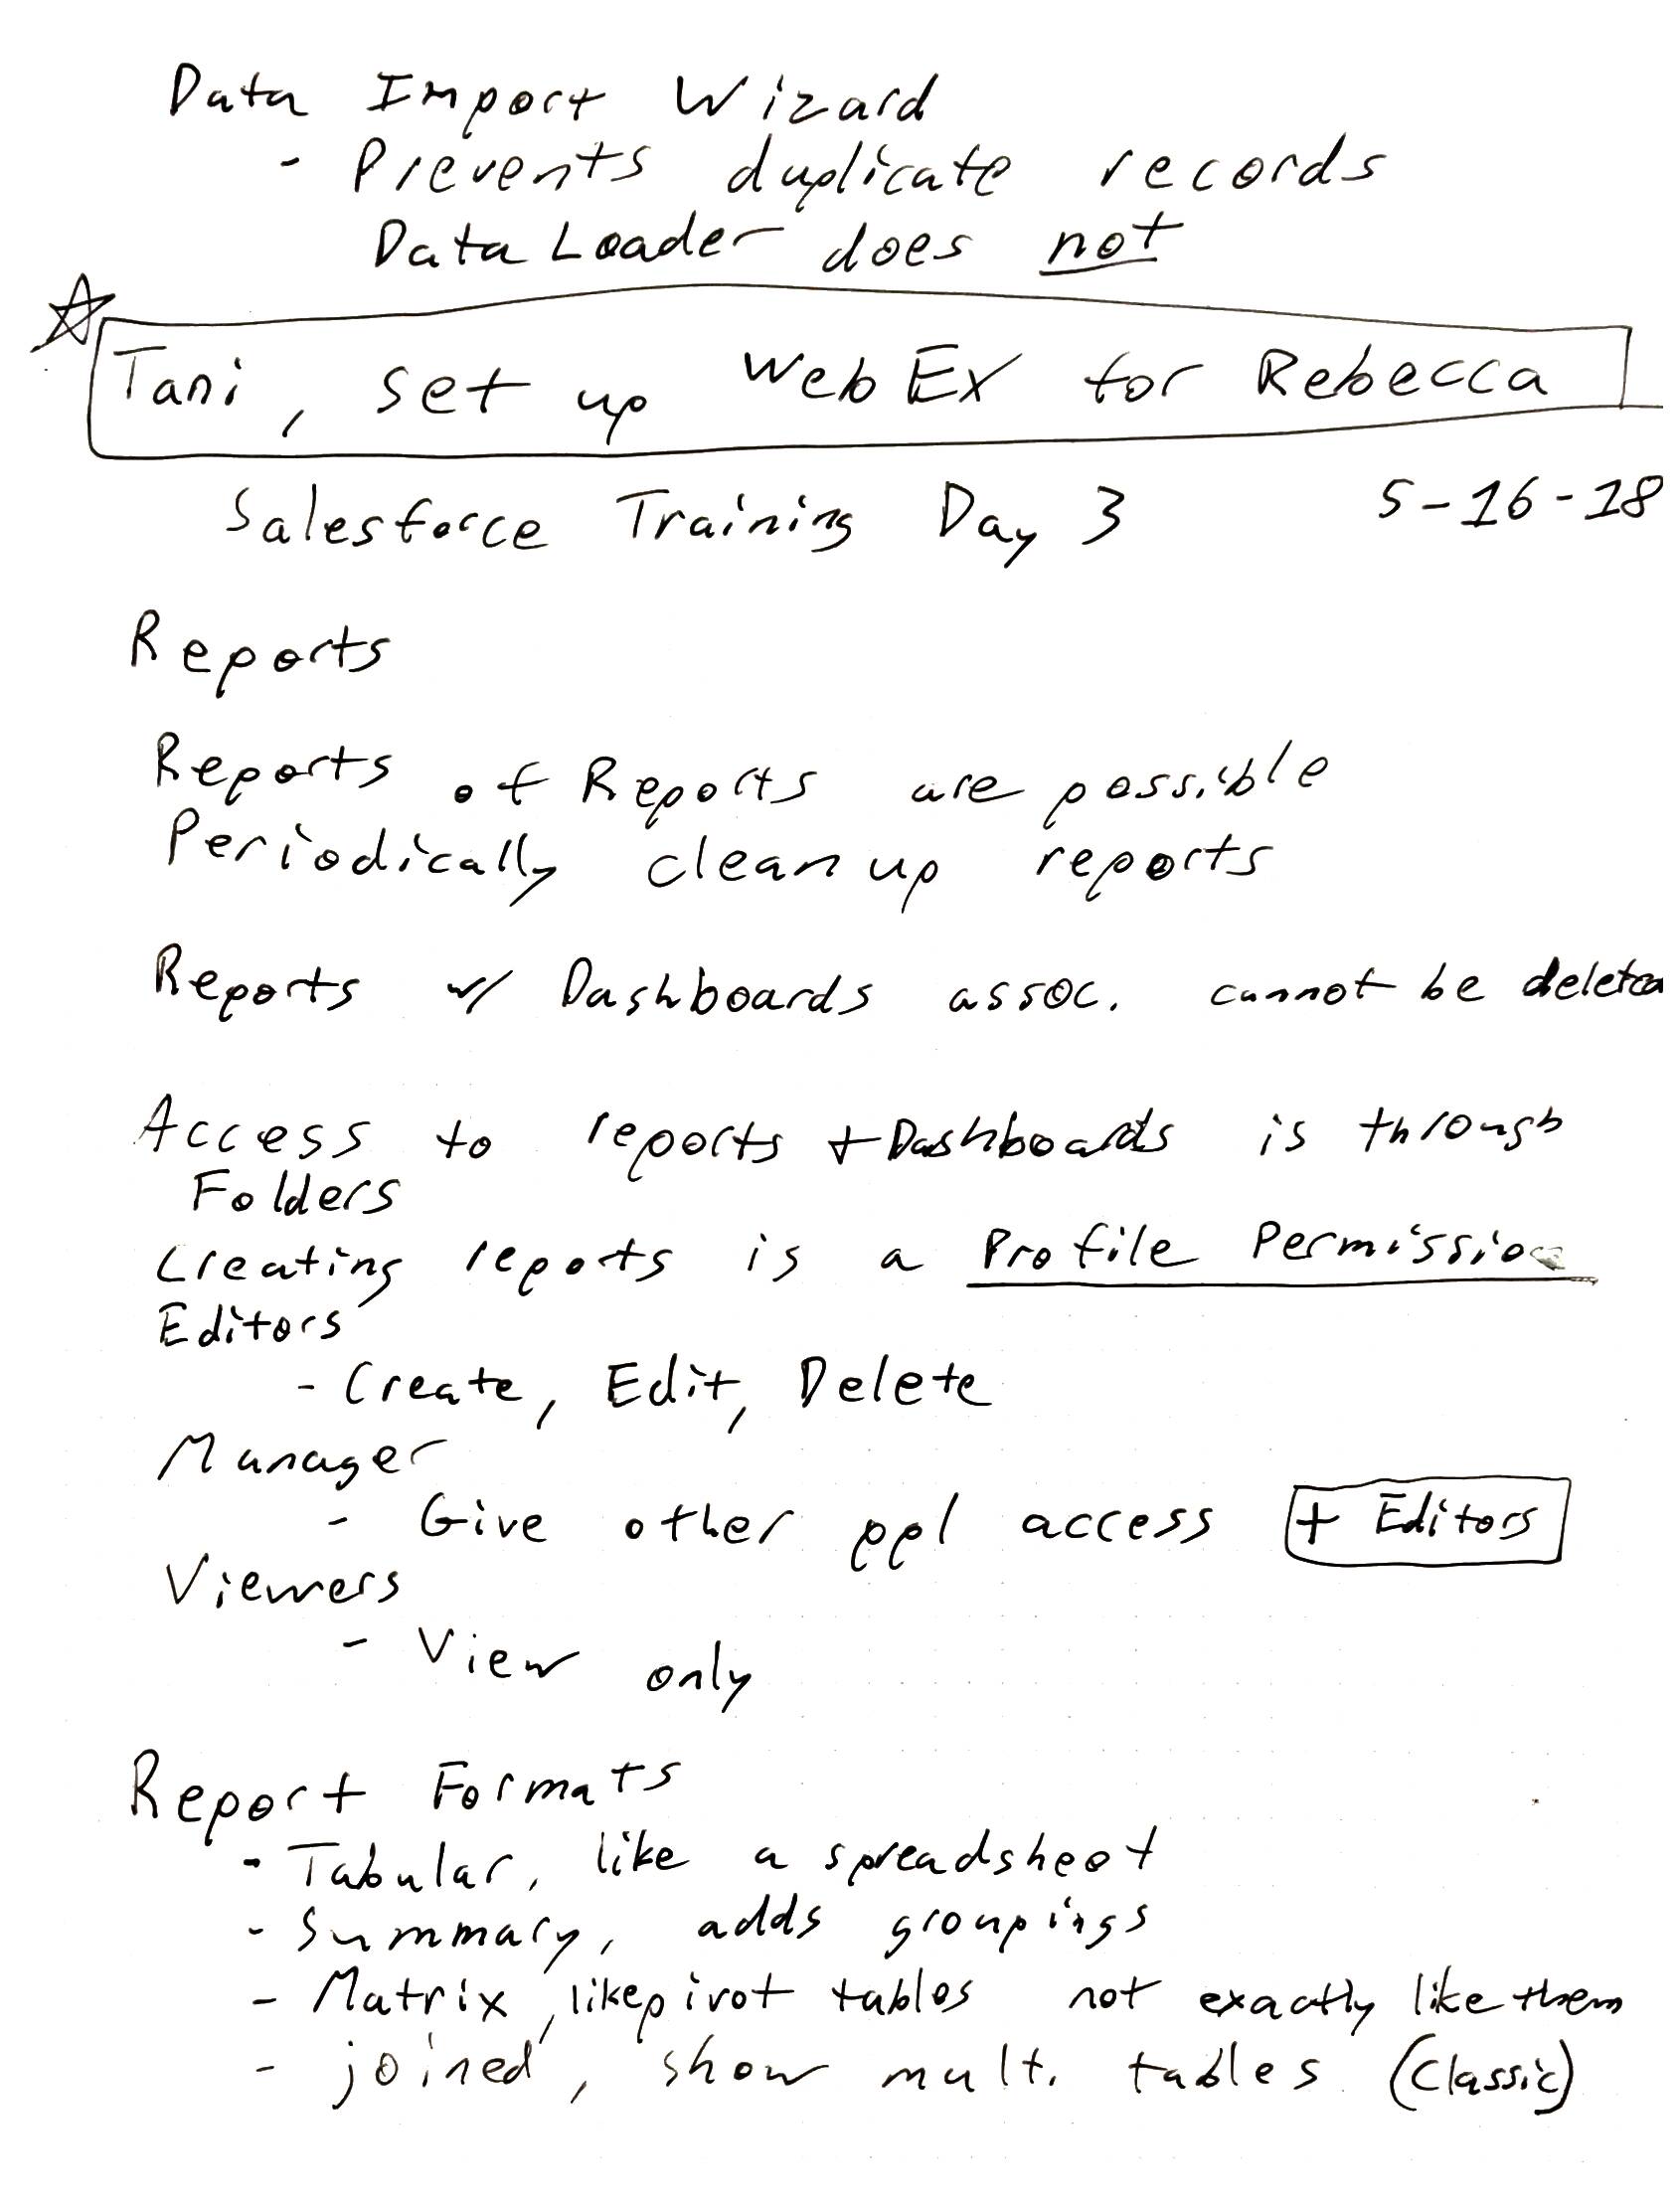 Data Import Wizard
- Prevents duplicate records
Data Loader does not
Tani, set up WebEx for Rebecca
Salesforce Training Day 3 5-16-18
Reports
Reports of Reports are possible
Periodically clean up reports
Reports w/ Dashboards assoc. cannot be deleted
Access to reports + Dashboards is through
Folders
Creating reports is a Profile Permission
Editors
- Create, Edit, Delete
Manager
- Give other ppl access + Editors
Viewers
- View only
Report Formats
- Tabular, like a spreadsheet
- Summary, adds groupings
- Matrix, like pivot tables not exactly like them
- joined, show mult. tables (Classic)